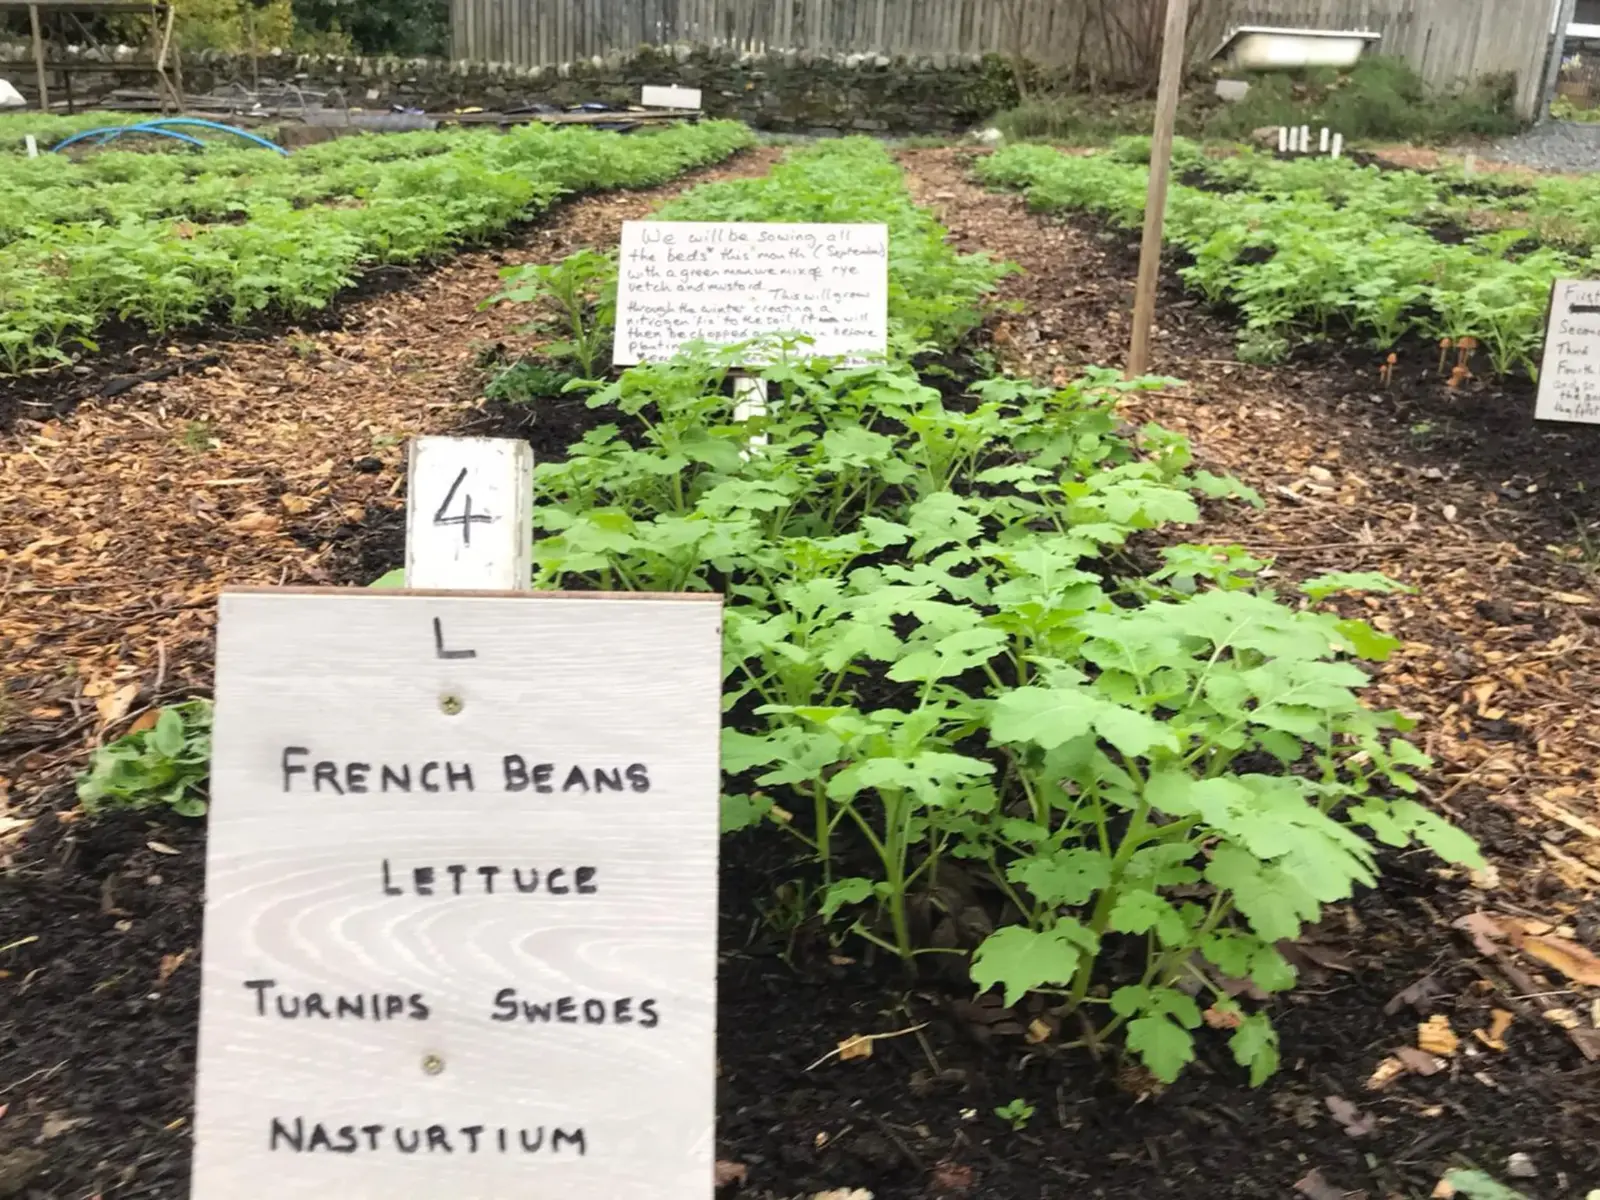 We will be sowing all
the beds this month (September)
with a green manure mix of rye
vetch and mustard.
This will grow
through the winter creating a
nitrogen 'fix' to the soil. It will
then be chopped before
planting
First
Second
Third
Fourth
4
L
FRENCH BEANS
LETTUCE
TURNIPS SWEDES
NASTURTIUM